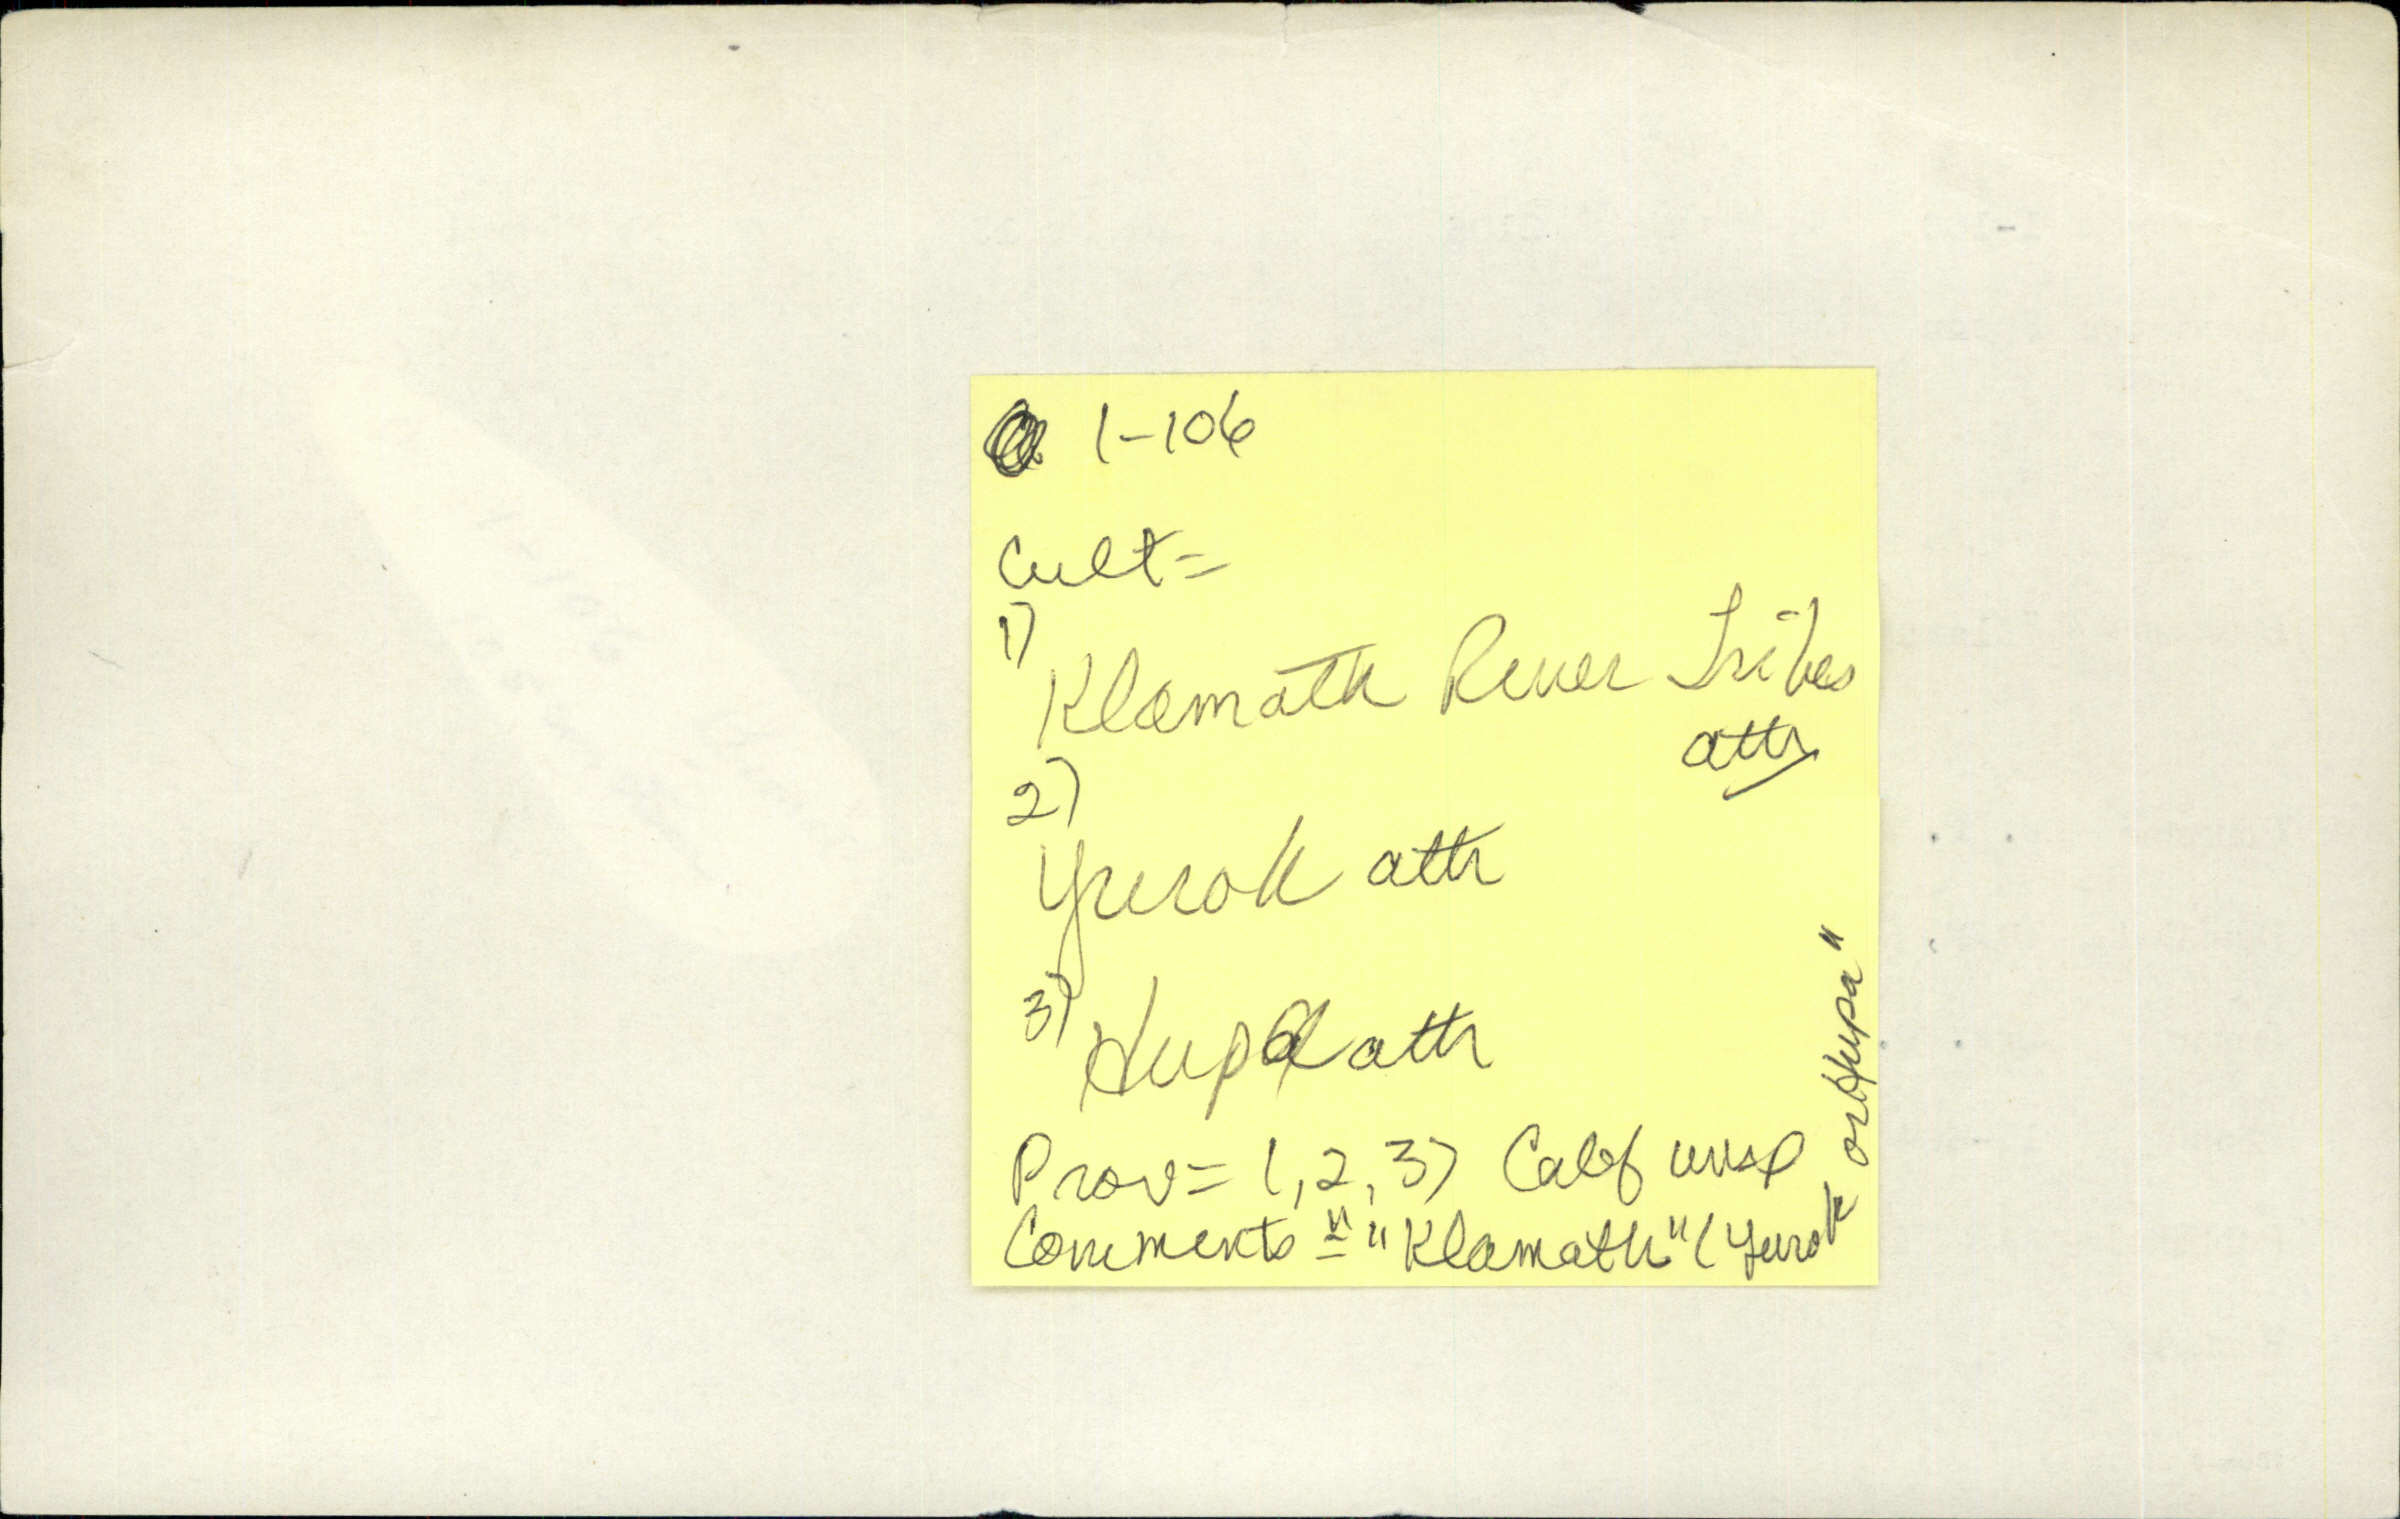 1-106
Cult=
1)
Klamath River Tribes
attr
2)
Yurok attr
3) Hupa attr
Prov= 1,2,3) Calif unsp
Comments = "Klamath" (Yurok or Hupa"